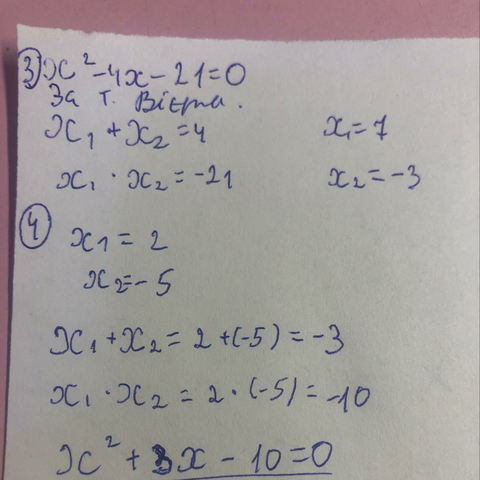 ③ x² - 4x - 21 = 0
За т. Вієта.
x₁ + x₂ = 4 x₁ = 7
x₁ · x₂ = -21 x₂ = -3
④ x₁ = 2
x₂ = -5
x₁ + x₂ = 2 + (-5) = -3
x₁ · x₂ = 2 · (-5) = -10
x² + 3x - 10 = 0